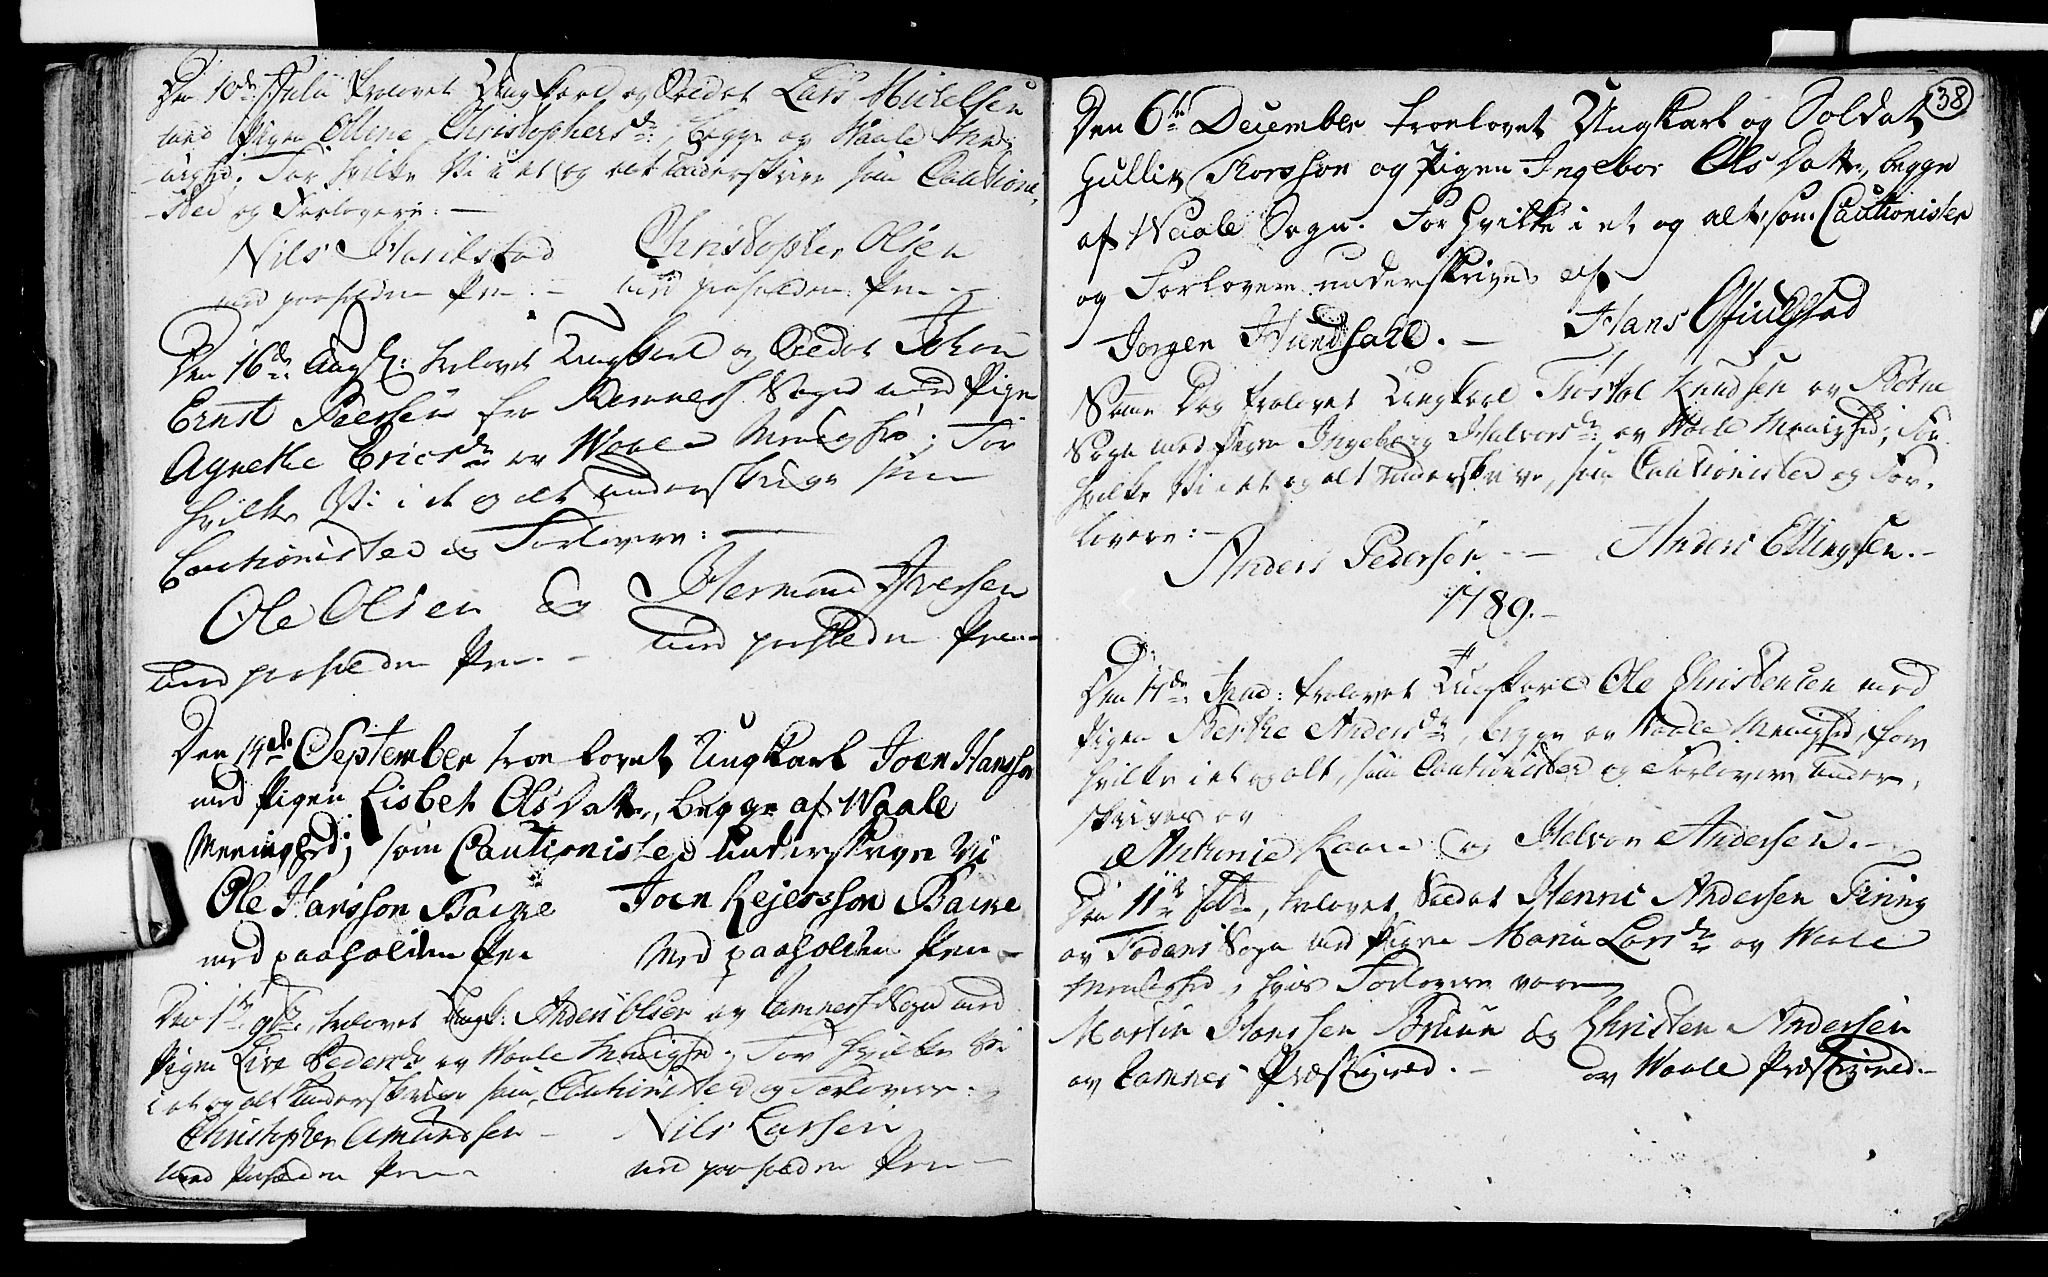 Den 10de Julii trolovet Ungkarl og Soldat Lars Michelsen
med Pigen Olline Christophersdr: begge av Waale Men-
-nighed. For hvilke Vi i et og alt underskrive som Cautioni-
-sted og Forlovere: -
Nils Christopher Olsen
med paaholden Pen. - med paaholden Pen -
Den 16de Augst: trolovet Ungkarl og Soldat Johan
Ernst Peersen fra Remness Sogn med Pige
Agnethe Ericsdr av Waale Menighed; For
hvilke Vi i et og alt underskrive som
Cautionisted og Forlovere: -
Ole Olsen og Hermand Iversen
med paaholden Pen. - med paaholden Pen -
Den 19de September troe lovet Ungkarl Joen Hansson
med Pigen Lisbet Ols Datter, begge af Waale
Meenighed; som Cautionisted underskriver Vi
Ole Hansson Backe Joen Rejersson Backe
med paaholden Pen Med paaholden Pen -
Den 1te 9br, trolovet Ungk: Anders Olsen av Ramness Sogn med
Pigen Live Pedersdr av Waale Menighed. For hvilke Vi
i et og alt underskrive som Cautionisted og Forlovere. -
Christopher Amundsen - Nils Larsen
med Paaholden Pen - med paaholden Pen -
38
Den 6te December troelovet Ungkarl og Soldat
Gullie Thorsson og Pigen Ingebor Ols Datter, begge
af Waale Sogn. For hvilke i et og alt som Cautionister
og Forlovere underskrives af
Jørgen Hundsahl. - Hans
Samme Dag trolovet Ungkarl Knudsen av Botne
Sogn med Pigen Ingeborg Halvorsdr av Waale Menighed; For
hvilke Vi i et og alt underskrive, som Cautionisted og For-
lovere: -
Anders Pedersen - - Anders Ellingsen. -
1789. -
Den Janu: trolovet Ungkarl Ole Christensen med
Pigen Berthe Andersdr, begge av Waale Menighed, for
hvilke i et og alt, som Cautionisted og Forlovere under-
skrives av
Anthonie Kaare og Halvor Andersen. -
Den 11te trolovet Soldat Henric Andersen Firing
av Sogn med Pigen Maria Larsdr av Waale
Menighed, hvis Forlovere vare
Martin Hanssen Bruun og Christen Andersen
av Ramnes Præstegield. - av Waale Præstegield. -